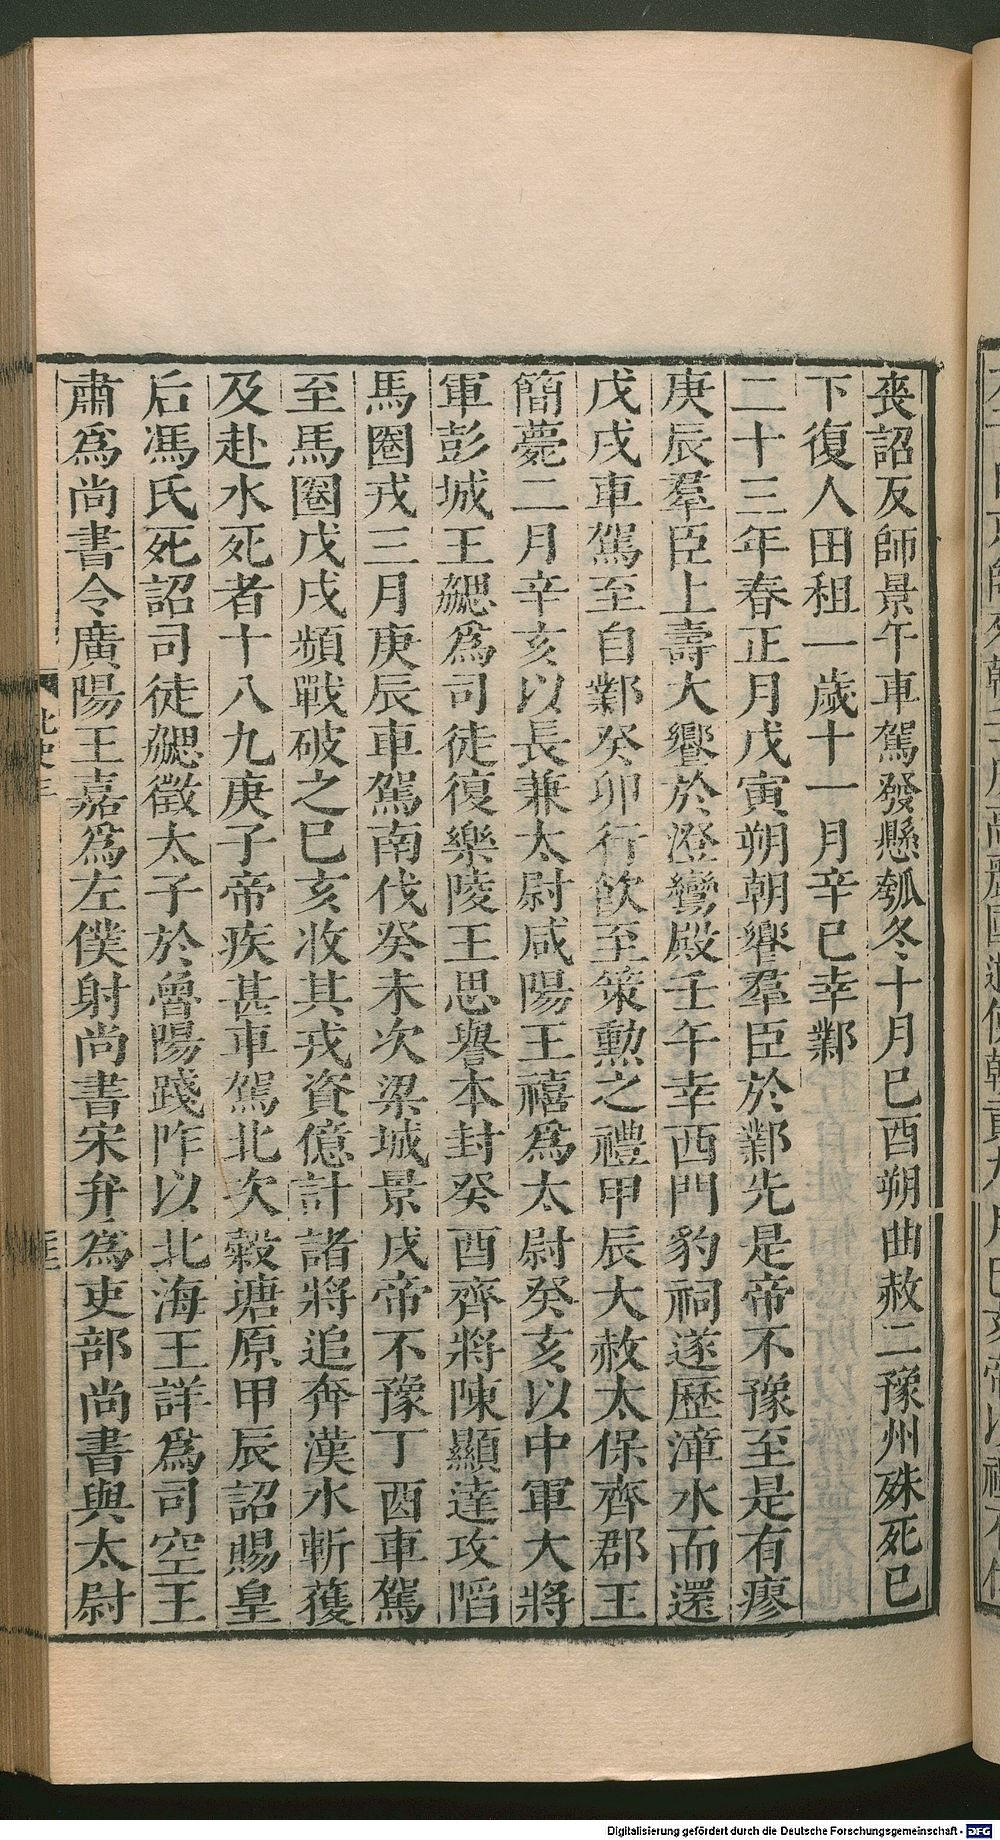 喪詔反師景午車駕發懸瓠冬十月巳酉朔曲赦二豫州殊死巳
下復人田租一歲十一月辛巳幸鄴
二十三年春正月戊寅朔朝饗羣臣於鄴先是帝不豫至是有瘳
庚辰羣臣上壽大饗於澄鸞殿壬午幸西門豹祠遂歷漳水而還
戊戌車駕至自鄴癸卯行飲至策勲之禮甲辰大赦太保齊郡王
簡薨二月辛亥以長兼太尉咸陽王禧爲太尉癸亥以中軍大將
軍彭城王勰爲司徒復樂陵王思譽本封癸酉齊將陳顯達攻䧟
馬圈戎三月庚辰車駕南伐癸未次梁城景戌帝不豫丁酉車駕
至馬圈戊戌頻戰破之巳亥收其戎資億計諸將追奔漢水斬獲
及赴水死者十八九庚子帝疾甚車駕北次穀塘原甲辰詔賜皇
后馮氏死詔司徒勰徵太子於魯陽踐阼以北海王詳爲司空王
肅爲尚書令廣陽王嘉爲左僕射尚書宋弁爲吏部尚書與太尉
北史三
Digitalisierung gefördert durch die Deutsche Forschungsgemeinschaft - DFG